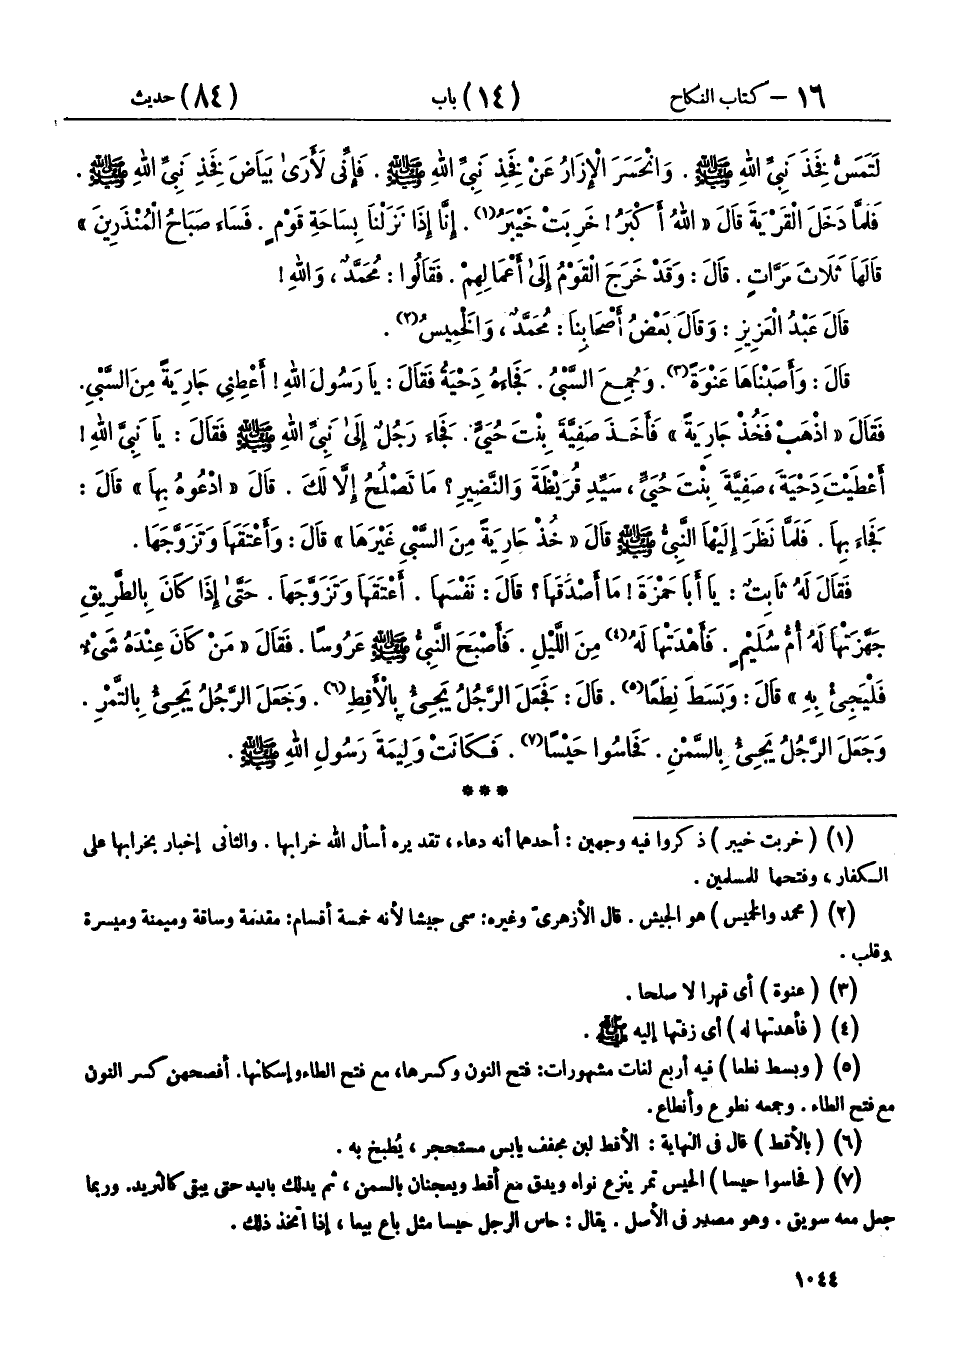 ١٦ – كتاب النكاح (١٤) باب (٨٤) حديث
لَتَمَسُّ فَخِذَ نَبِيِّ اللهِ ﷺ . وَانْحَسَرَ الْإِزَارُ عَنْ فَخِذِ نَبِيِّ اللهِ ﷺ . فَإِنِّي لَأَرَىٰ بَيَاضَ فَخِذِ نَبِيِّ اللهِ ﷺ .
فَلَمَّا دَخَلَ الْقَرْيَةَ قَالَ « اللهُ أَكْبَرُ ! خَرِبَتْ خَيْبَرُ(١) . إِنَّا إِذَا نَزَلْنَا بِسَاحَةِ قَوْمٍ . فَسَاءَ صَبَاحُ الْمُنْذَرِينَ »
قَالَهَا ثَلَاثَ مَرَّاتٍ . قَالَ : وَقَدْ خَرَجَ الْقَوْمُ إِلَىٰ أَعْمَالِهِمْ . فَقَالُوا : مُحَمَّدٌ ، وَاللهِ !
قَالَ عَبْدُ الْعَزِيزِ : وَقَالَ بَعْضُ أَصْحَابِنَا : مُحَمَّدٌ ، وَالْخَمِيسُ(٢) .
قَالَ : وَأَصَبْنَاهَا عَنْوَةً(٣). وَجُمِعَ السَّبْيُ . فَجَاءَهُ دِحْيَةُ فَقَالَ : يَا رَسُولَ اللهِ ! أَعْطِنِي جَارِيَةً مِنَ السَّبْيِ.
فَقَالَ « اذْهَبْ فَخُذْ جَارِيَةً » فَأَخَذَ صَفِيَّةَ بِنْتَ حُيَيٍّ. فَجَاءَ رَجُلٌ إِلَىٰ نَبِيِّ اللهِ ﷺ فَقَالَ : يَا نَبِيَّ اللهِ !
أَعْطَيْتَ دِحْيَةَ ، صَفِيَّةَ بِنْتَ حُيَيٍّ ، سَيِّدِ قُرَيْظَةَ وَالنَّضِيرِ ؟ مَا تَصْلُحُ إِلَّا لَكَ . قَالَ « ادْعُوهُ بِهَا » قَالَ :
فَجَاءَ بِهَا . فَلَمَّا نَظَرَ إِلَيْهَا النَّبِيُّ ﷺ قَالَ « خُذْ جَارِيَةً مِنَ السَّبْيِ غَيْرَهَا » قَالَ : وَأَعْتَقَهَا وَتَزَوَّجَهَا .
فَقَالَ لَهُ ثَابِتٌ : يَا أَبَا حَمْزَةَ ! مَا أَصْدَقَهَا ؟ قَالَ : نَفْسَهَا . أَعْتَقَهَا وَتَزَوَّجَهَا . حَتَّىٰ إِذَا كَانَ بِالطَّرِيقِ
جَهَّزَتْهَا لَهُ أُمُّ سُلَيْمٍ . فَأَهْدَتْهَا لَهُ(٤) مِنَ اللَّيْلِ . فَأَصْبَحَ النَّبِيُّ ﷺ عَرُوسًا . فَقَالَ « مَنْ كَانَ عِنْدَهُ شَيْءٌ
فَلْيَجِئْ بِهِ » قَالَ : وَبَسَطَ نِطَعًا(٥) . قَالَ : فَجَعَلَ الرَّجُلُ يَجِيءُ بِالْأَقِطِ(٦) . وَجَعَلَ الرَّجُلُ يَجِيءُ بِالتَّمْرِ .
وَجَعَلَ الرَّجُلُ يَجِيءُ بِالسَّمْنِ . فَحَاسُوا حَيْسًا(٧) . فَكَانَتْ وَلِيمَةَ رَسُولِ اللهِ ﷺ .
* * *
(١) ( خربت خيبر ) ذكروا فيه وجهين : أحدهما أنه دعاء ، تقديره أسأل الله خرابها . والثاني إخبار بخرابها على
الكفار ، وفتحها للمسلمين .
(٢) ( محمد والخميس ) هو الجيش . قال الأزهريّ وغيره : سمى جيشا لأنه خمسة أقسام : مقدمة وساقة وميمنة وميسرة
وقلب .
(٣) ( عنوة ) أى قهرا لا صلحا .
(٤) ( فأهدتها له ) أى زفتها إليه ﷺ .
(٥) ( وبسط نطعا ) فيه أربع لغات مشهورات : فتح النون وكسرها، مع فتح الطاء وإسكانها. أفصحهن كسر النون
مع فتح الطاء . وجمعه نطوع وأنطاع.
(٦) ( بالأقط ) قال فى النهاية : الأقط لبن مجفف يابس مستحجر ، يُطبخ به .
(٧) ( فحاسوا حيسا ) الحيس تمر ينزع نواه ويدق مع أقط ويعجنان بالسمن ، ثم يدلك باليد حتى يبقى كالثريد. وربما
جعل معه سويق . وهو مصدر فى الأصل . يقال : حاس الرجل حيسا مثل باع بيعا ، إذا اتخذ ذلك .
١٠٤٤